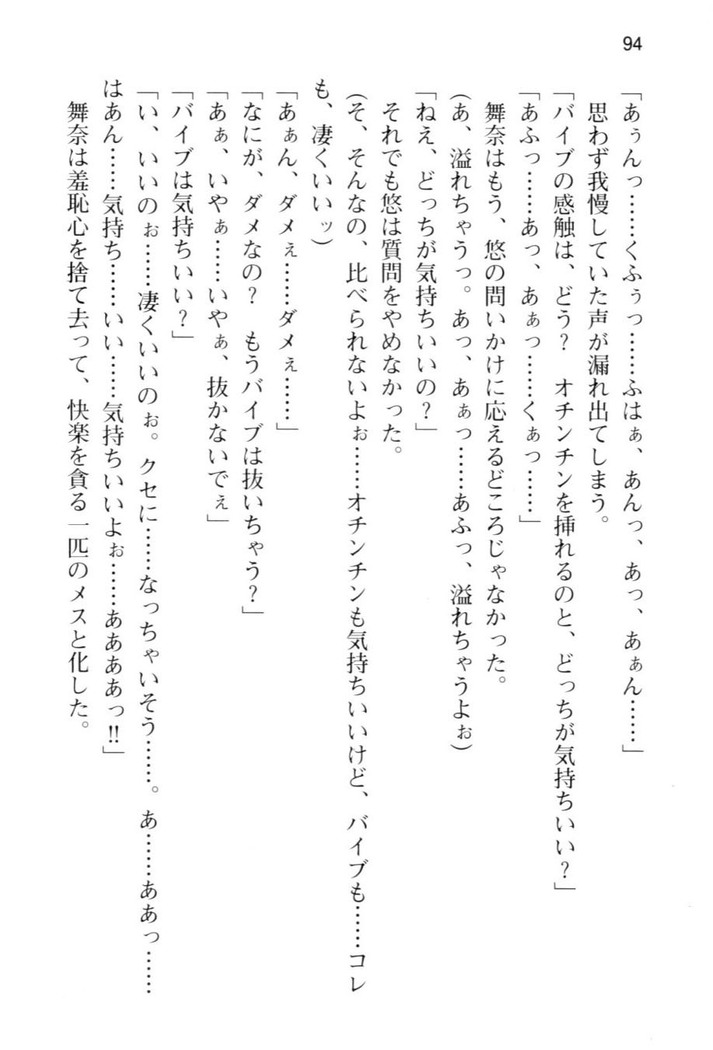 94
「あぅんっ……くふぅっ……ふはぁ、あんっ、あっ、あぁん……」
思わず我慢していた声が漏れ出てしまう。
「バイブの感触は、どう？　オチンチンを挿れるのと、どっちが気持ちいい？」
「あふっ……あっ、あぁっ……くぁっ……」
舞奈はもう、悠の問いかけに応えるどころじゃなかった。
(あ、溢れちゃうっ。あっ、あぁっ……あふっ、溢れちゃうよぉ)
「ねえ、どっちが気持ちいいの？」
それでも悠は質問をやめなかった。
(そ、そんなの、比べられないよぉ……オチンチンも気持ちいいけど、バイブも……コレ
も、凄くいいッ)
「あぁん、ダメぇ……ダメぇ……」
「なにが、ダメなの？　もうバイブは抜いちゃう？」
「あぁ、いやぁ……いやぁ、抜かないでぇ」
「バイブは気持ちいい？」
「い、いいのぉ……凄くいいのぉ。クセに……なっちゃいそう……。あ……ああっ……
はあん……気持ち……いい……気持ちいいよぉ……ああああっ!!」
舞奈は羞恥心を捨て去って、快楽を貪る一匹のメスと化した。